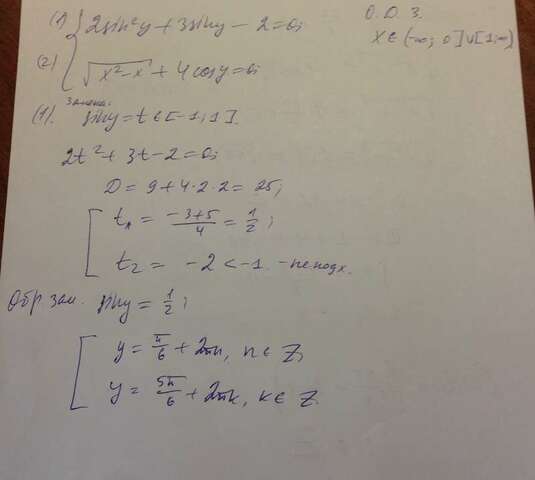 (1) { 2sin²y + 3siny - 2 = 0;
О.О.З.
x ∈ (-∞; 0] ∪ [1; ∞)
(2) √x²-x + 4cosy = 0;
Замена:
(1). siny = t ∈ [-1; 1].
2t² + 3t - 2 = 0;
D = 9 + 4·2·2 = 25;
[ t₁ = (-3+5)/4 = 1/2;
t₂ = -2 < -1. - не подх.
Обр зам. siny = 1/2;
[ y = π/6 + 2πn, n ∈ Z;
y = 5π/6 + 2πk, k ∈ Z.